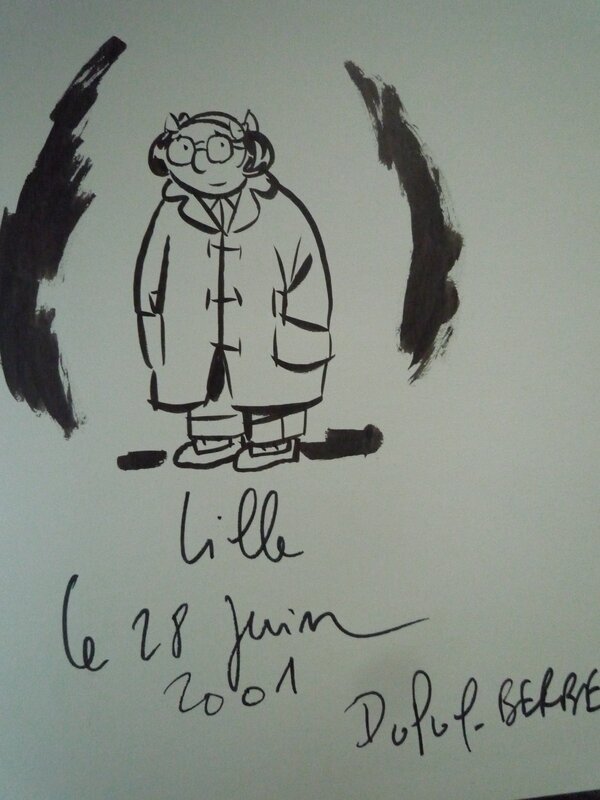 Lille
le 28 Juin
2001
Dupuy-BERBE